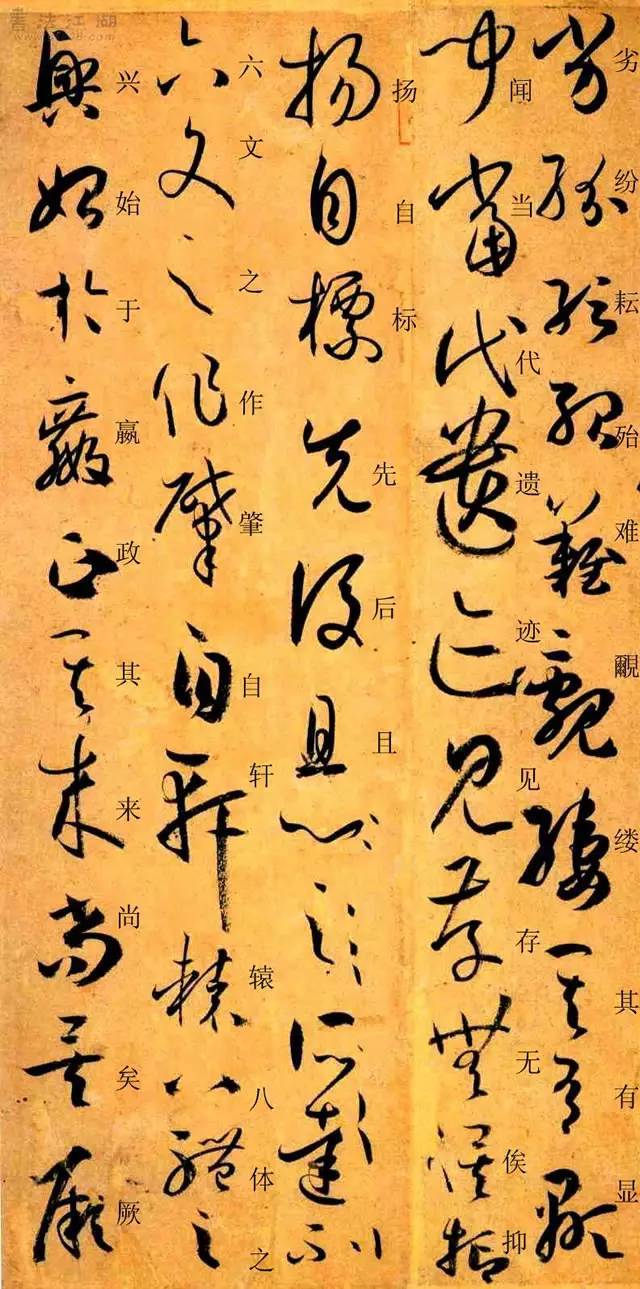 書法江湖
劣紛紜殆難覼縷其有顯
劣纷耘殆难覼缕其有显
聞當代遺迹見存無俟抑
闻当代遗迹见存无俟抑
揚自標先後且
扬自标先后且
六文之作肇自軒轅八體之
六文之作肇自轩辕八体之
興始於嬴政其來尚矣厥
兴始于嬴政其来尚矣厥